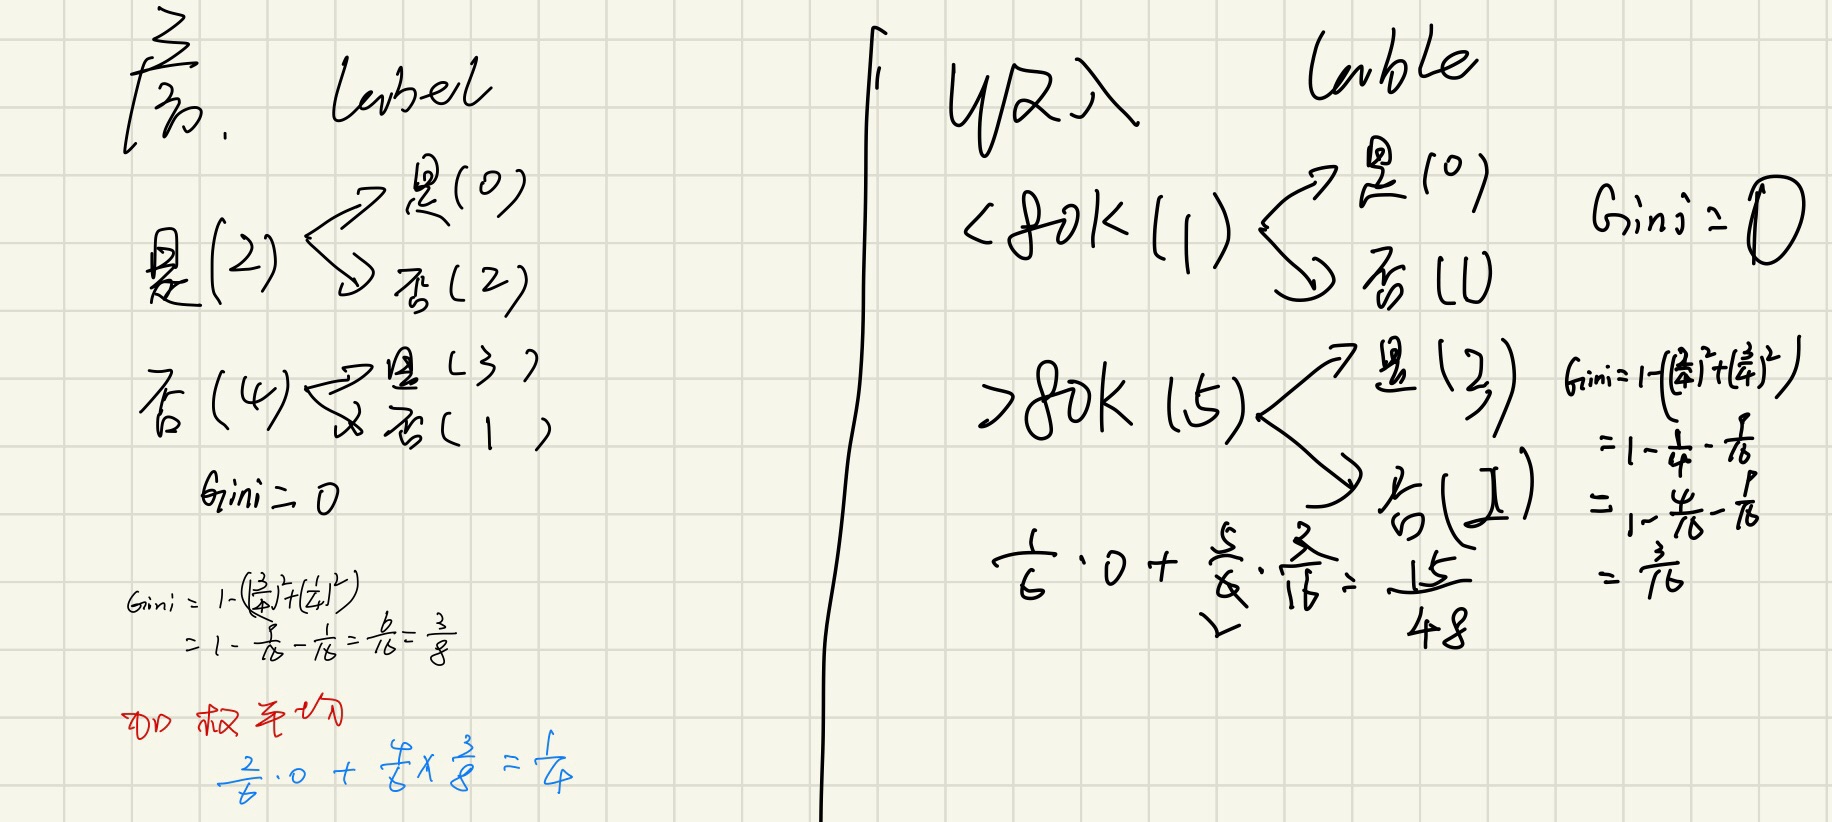 Label
是(2) 是(0)
否(2)
否(4) 是(3)
否(1)
Gini=0
Gini = 1-((3/4)²+(1/4)²)
= 1 - 9/16 - 1/16 = 6/16 = 3/8
加权平均
2/6 · 0 + 4/6 × 3/8 = 1/4
收入 Lable
<80K (1) 是(0) Gini = 0
否(1)
>80K (5) 是(3) Gini = 1-((2/4)²+(3/4)²)
否
= 1 - 1/4 - 9/16
= 1 - 4/16 - 9/16
= 3/16
1/6 · 0 + 5/6 · 3/16 = 15/48